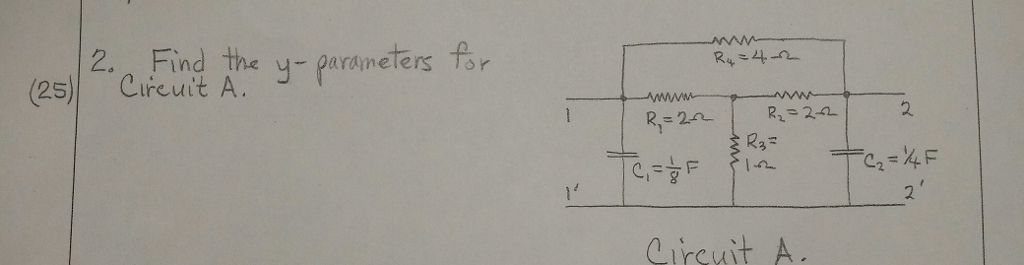 2. Find the y-parameters for
(25) Circuit A.
R₄=4Ω
1
R₁=2Ω
R₂=2Ω
2
R₃=
1Ω
C₁=1/8 F
C₂=1/4 F
1'
2'
Circuit A.